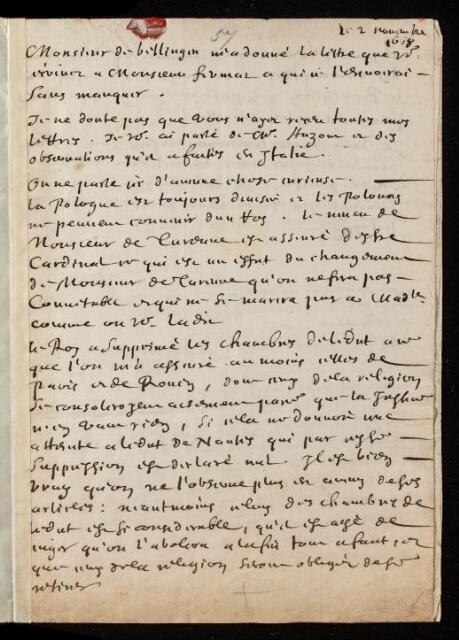 57
le 2 novembre
1668
Monsieur de bellingen m'a donné la lettre que vos.
escrivez a Monsieur fermat a qui ie l'envoirai
sans manquer.
Je ne doute pas que vous n'ayez receu toutes mes
lettres. Je vos. ai parlé de Mr. Auzout et des
observations qu'il a faites en Italie.
On ne parle ici d'aucune chose curieuse.
La Pologne est toujours divisée et les Polonois
ne peuvent convenir d'un Roy. le neveu de
Monsieur de Turenne est asseuré d'estre
Cardinal ce qui est un effet du changement
de Monsieur de Turenne qu'on ne fera pas
Connétable et qui ne se mariera pas a Madlle
comme on vos. l'a dit
le Roy a supprimé les chambres de l'edit a ce
que l'on m'a asseuré au moins celles de
Paris et de Rouen, dont ceux de la religion
se consoleroient aisement parce que la Justice
n'en vaut rien, si cela ne donnoit une
atteinte a l'edit de Nantes qui par cette
suppression est declaré nul. Il est bien
vray qu'on ne l'observe plus en aucun de ses
articles: neantmoins celuy des chambres de
l'edit est si considerable, qu'il est aisé de
juger qu'on l'abolira a la fin tout a fait et
que ceux de la religion seront obligez de se
retirer